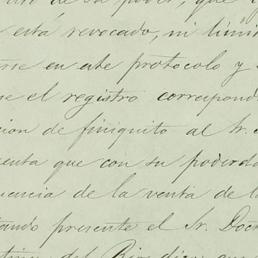 de su poder, que
está revocado, ni limi
en este protocolo y
se el registro correspond
cion de finiquito al Sr.
enta que con su poderda
uencia de la venta de l
tando presente el Sr. Doc
del